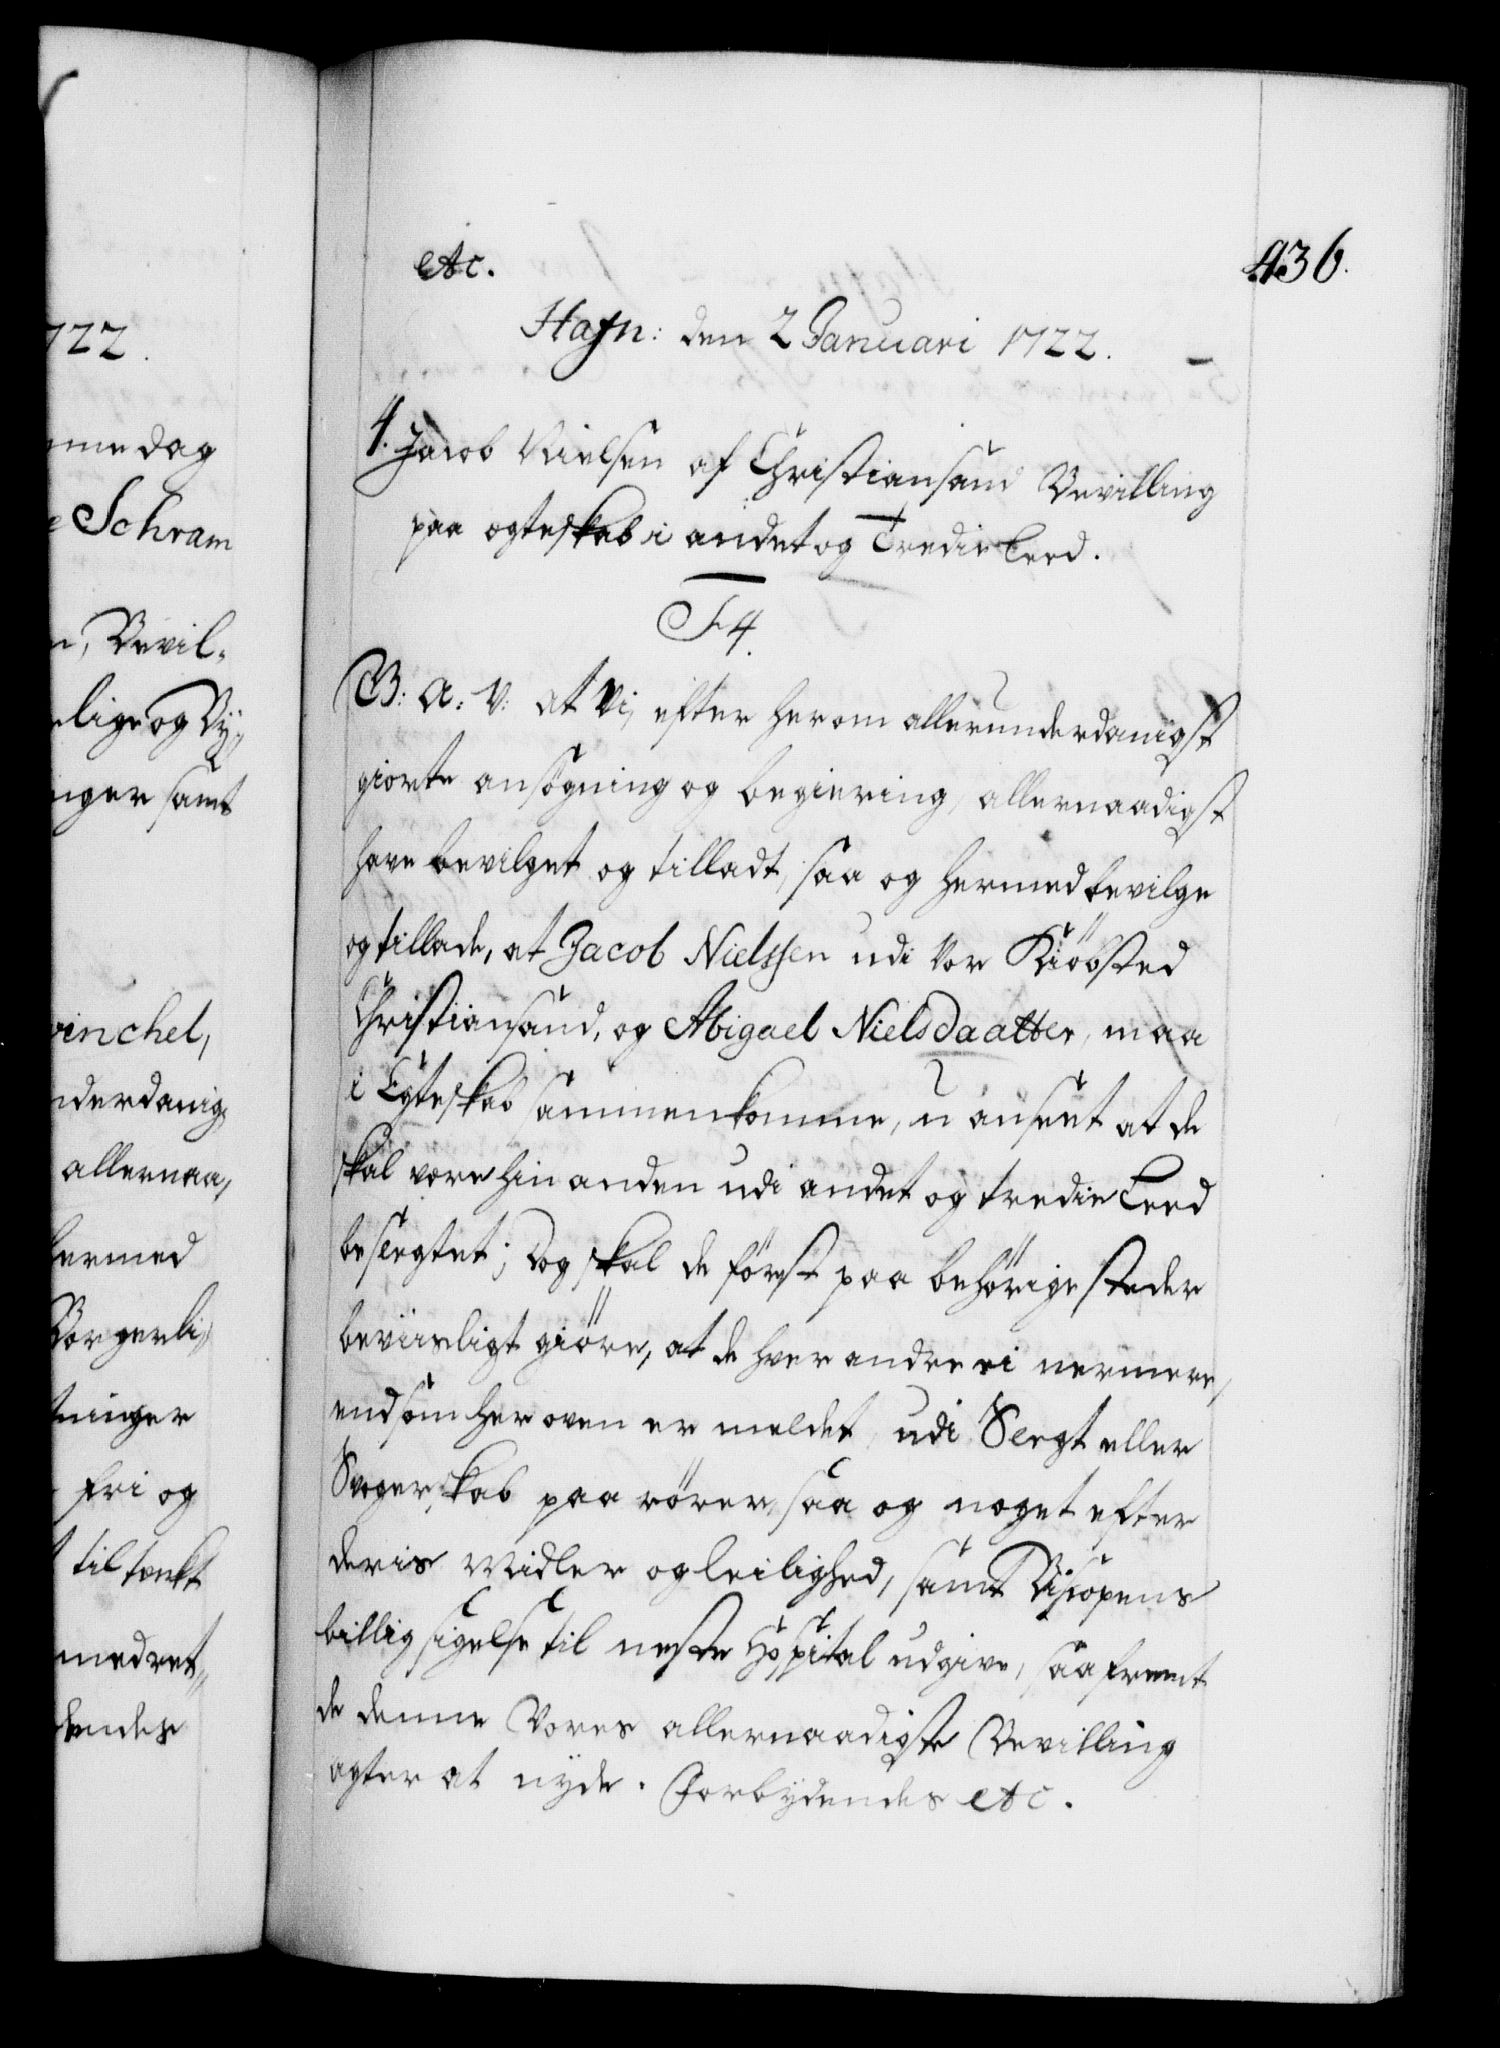 722.
me dag
e Schram
n, Bevil-
elige og By-
nger samt
vinchel,
nderdanig
allernaa,
hermed
Borgerli,
tninger
fri og
til tenkt
med ret,
hende
etc. 436.
Hafn: den 2 Januari 1722.
4. Jacob Nielsen af Christiansand Bevilling
paa egteskab i andet og tredie Leed.
F4.
G: A: V: at Vi, efter herom allerunderdanigst
giorte ansøgning og begiering, allernaadigst
have bevilget og tilladt, saa og hermed bevilge
og tillade, at Jacob Nielssen udi Vor Kiøbsted
Christiansand, og Abigael Nielsdaatter, maa
i Egteskab sammenkomme, u anseet at de
skal vere hin anden udi andet og tredie Leed
beslegtet; Dog skal de først paa behørige steder
beviisligt giøre, at de hver andre ei nermere,
end som her oven er meldet, udi Slegt eller
Svogerskab paa rører, saa og noget efter
deris Midler og leilighed, samt Biscopens
billig sigelse til neste Hospital udgive, saafremt
de denne Vores allernaadigste Bevilling
agter at nyde. Forbydendes etc.